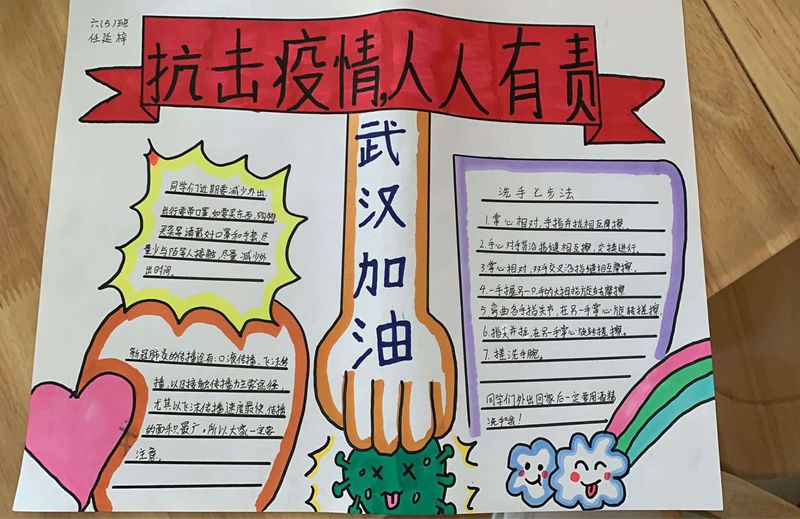 六(5)班
任延梓
抗击疫情,人人有责
武汉加油
同学们近期要减少外出,
出行要带口罩,如要买东西,购物,
买菜等请戴好口罩和手套,尽
量少与陌等人接触,尽量减少外
出时间。
新冠肺炎的传播途有:口液传播、飞沫传
播,以及接触传播为主要途径,
尤其以飞沫传播速度最快传播
的面积最广,所以大家一定要
注意。
洗手七步法
1.掌心相对,手指并拢相互摩擦。
2.手心对手背沿指缝相互摩擦,交换进行。
3.掌心相对,双手交叉沿指缝相互摩擦。
4.一手握另一只手的大拇指旋转摩擦。
5.弯曲各手指关节,在另一手掌心旋转搓擦。
6.指尖并拢,在另手掌心旋转搓擦。
7.搓洗手腕。
同学们外出回家后一定要用酒精
洗手哦!